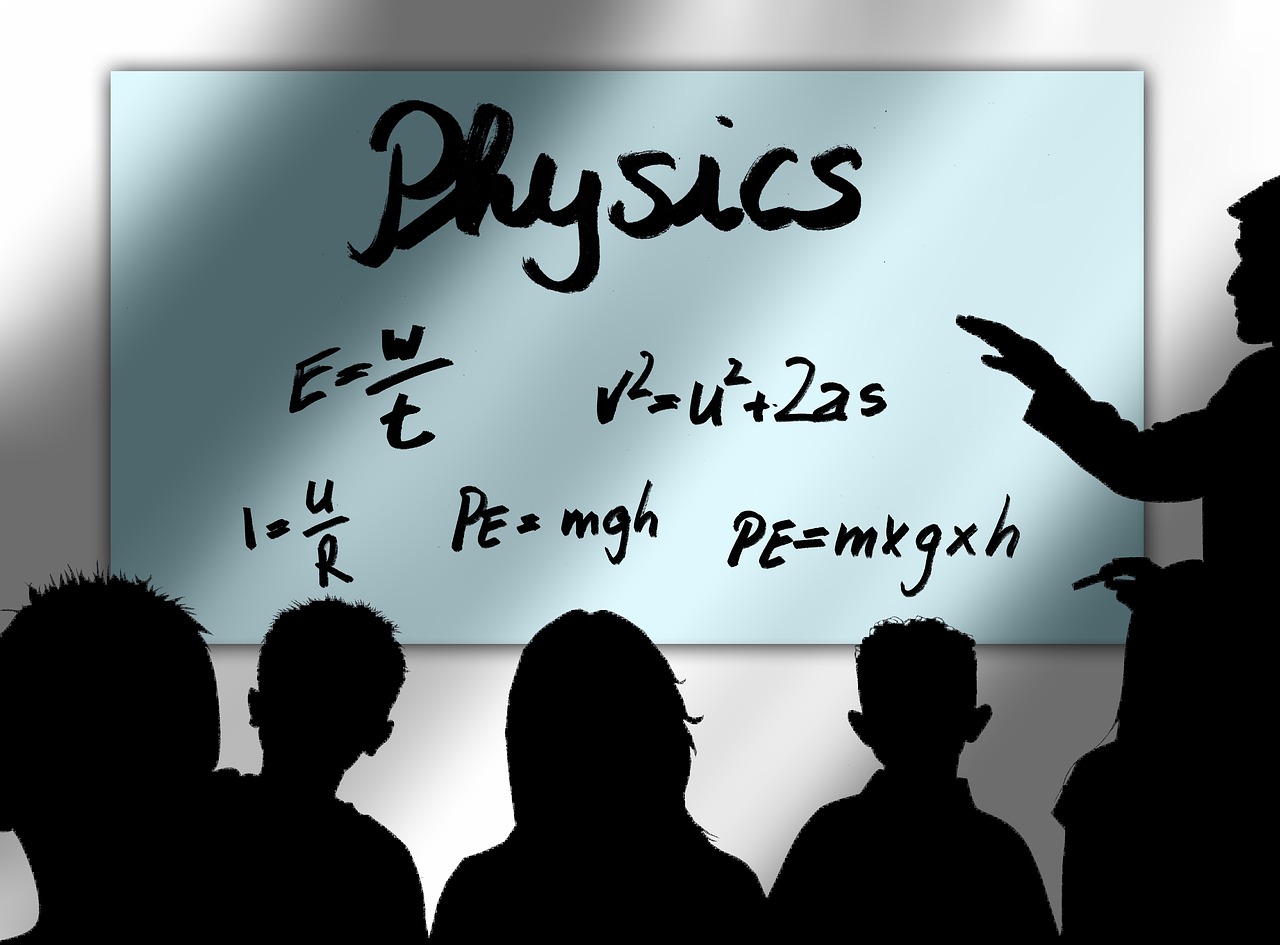 Physics
E = w/t v² = u² + 2as
I = u/R PE = mgh PE = mxgxh